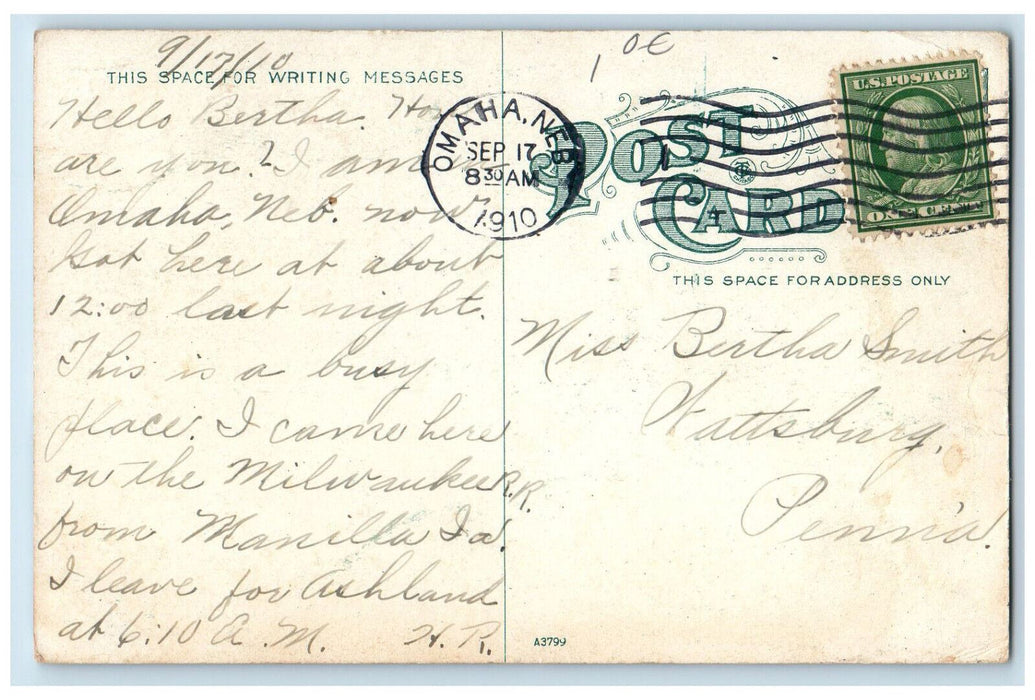 9/17/10
THIS SPACE FOR WRITING MESSAGES
Hello Bertha. How
are you? I am
Omaha, Neb. now
Got here at about
12:00 last night.
This is a busy
place. I came here
on the Milwaukee R.R.
from Manilla Ia.
I leave for Ashland
at 6:10 A.M. H.R.
OMAHA, NEB.
SEP 17
8 30 AM
1910
POST
CARD
U.S. POSTAGE
ONE CENT
THIS SPACE FOR ADDRESS ONLY
Miss Bertha Smith
Wattsburg,
Penn'a.
A3799